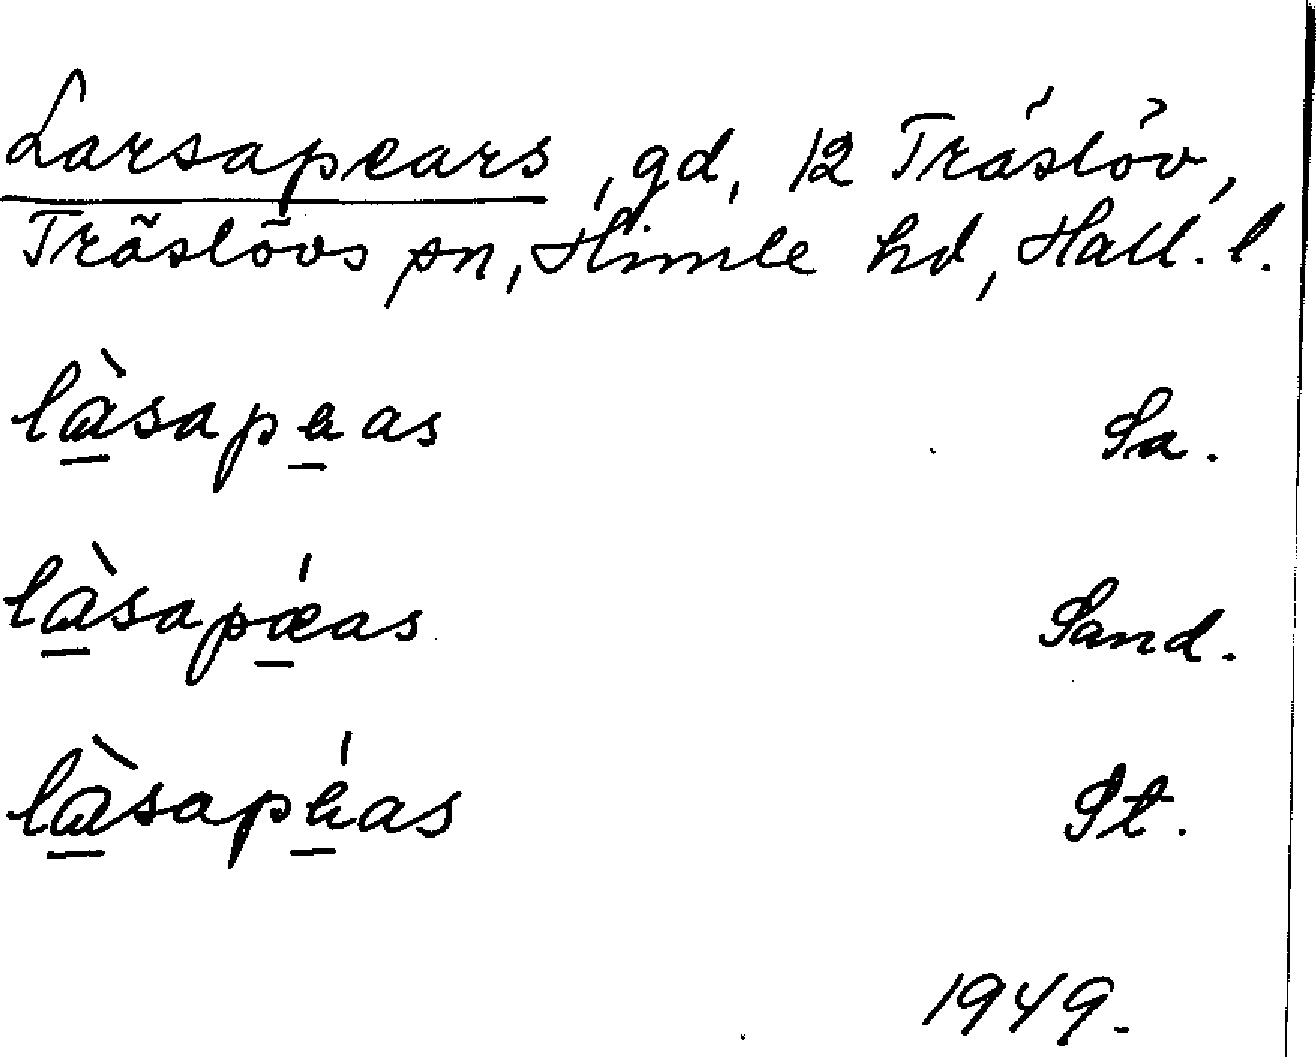 Larsapears, gd, 12 Träslöv,
Träslövs sn, Himle hd, Hall. l.
làsapeas Sa.
làsapǽas Sand.
làsapéas St.
1949.